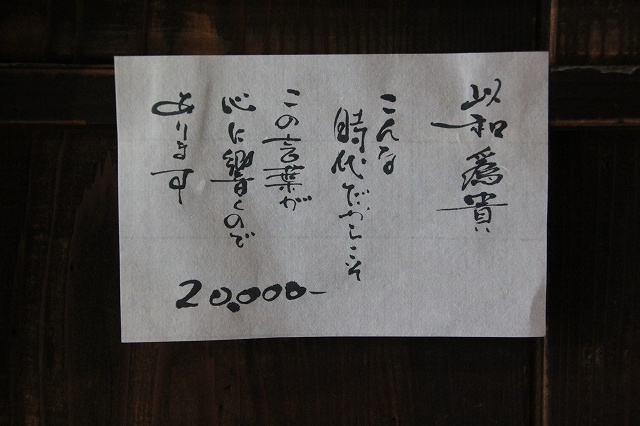 以和為貴
こんな
時代だからこそ
この言葉が
心に響くので
あります
20.000-